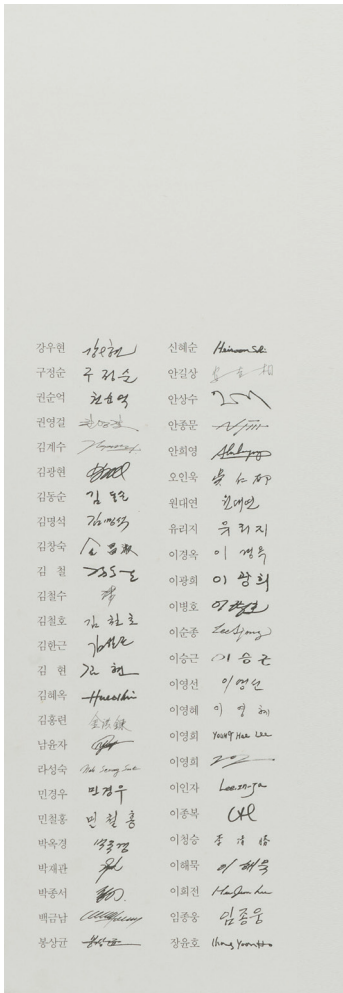 강우현 강우현
구정순 구정순
권순억 권순억
권영걸
김계수
김광현
김동순 김동순
김명석 김명석
김창숙 金昌淑
김 철
김철수
김철호 김철호
김한근
김 현 김현
김혜옥
김홍련 金洪鍊
남윤자
라성숙 Rah Seong Sook
민경우 민경우
민철홍 민철홍
박옥경 박옥경
박재관
박종서
백금남
봉상균 봉상균
신혜순
안길상 安吉相
안상수
안종문
안희영
오인욱 吳仁郁
원대연 원대연
유리지 유리지
이경옥 이경옥
이광희 이광희
이병호
이순종 Lee Sjong
이승근 이승근
이영선 이영선
이영혜 이영혜
이영희 YOUNG Hee Lee
이영희
이인자 Lee In-ja
이종복
이청승
이해묵 이해묵
이희전
임종웅 임종웅
장윤호